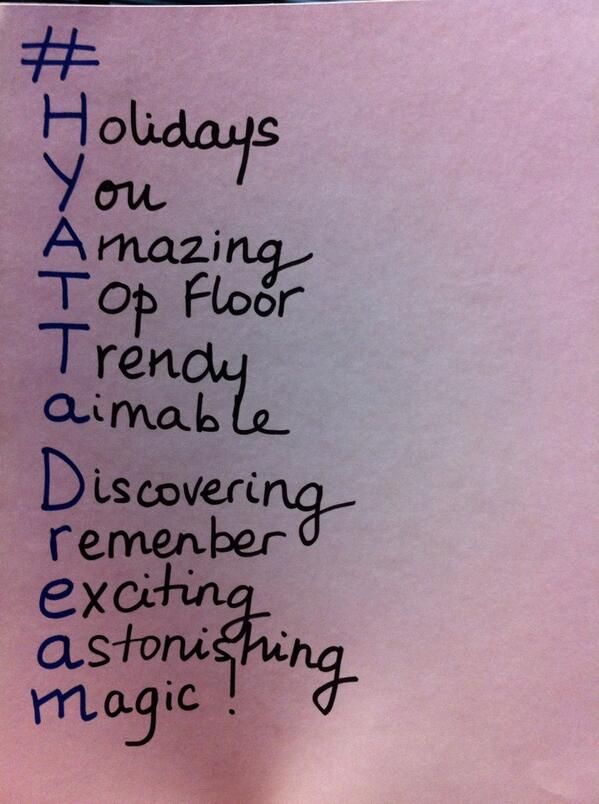 #
Holidays
You
Amazing
Top Floor
Trendy
aimable
Discovering
remenber
exciting
astonishing
magic !